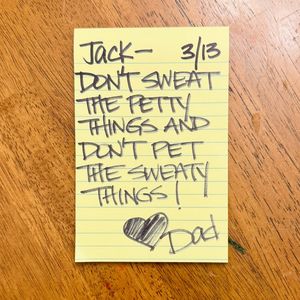 Jack— 3/13
DON'T SWEAT
THE PETTY
THINGS AND
DON'T PET
THE SWEATY
THINGS!
Dad